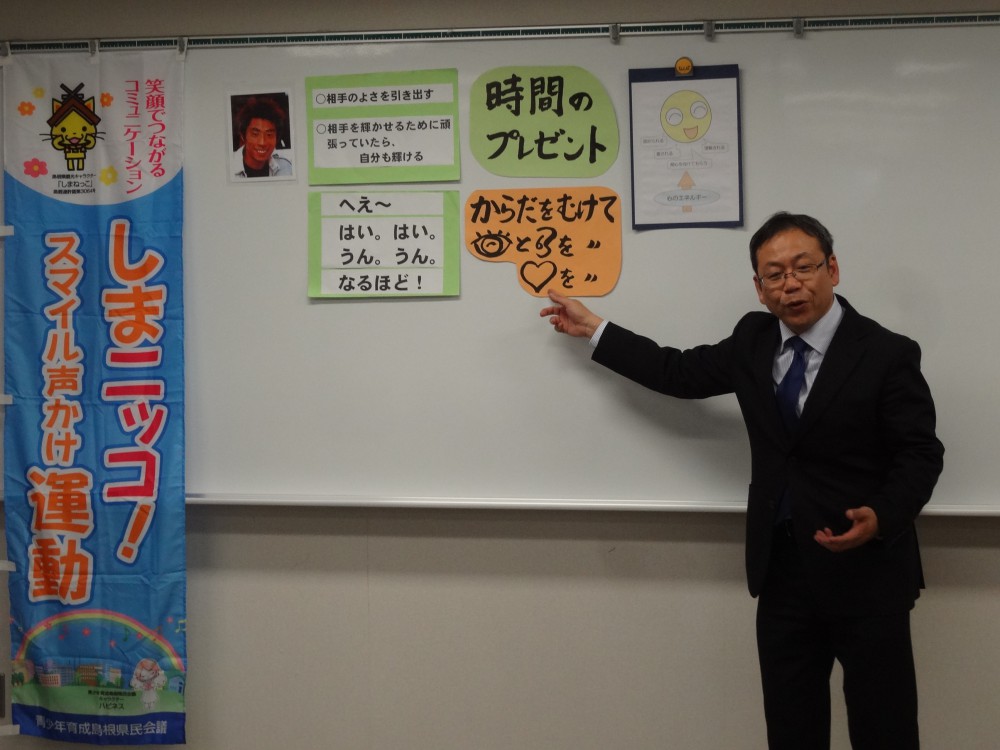 笑顔でつながる
コミュニケーション
島根県観光キャラクター
「しまねっこ」
しまニッコ!
スマイル声かけ
運動
ハピネス
青少年育成島根県民会議
○相手のよさを引き出す
○相手を輝かせるために頑
張っていたら、
自分も輝ける
へえ～
はい。はい。
うん。うん。
なるほど!
時間の
プレゼント
からだをむけて
と を 〃
を 〃
心のエネルギー